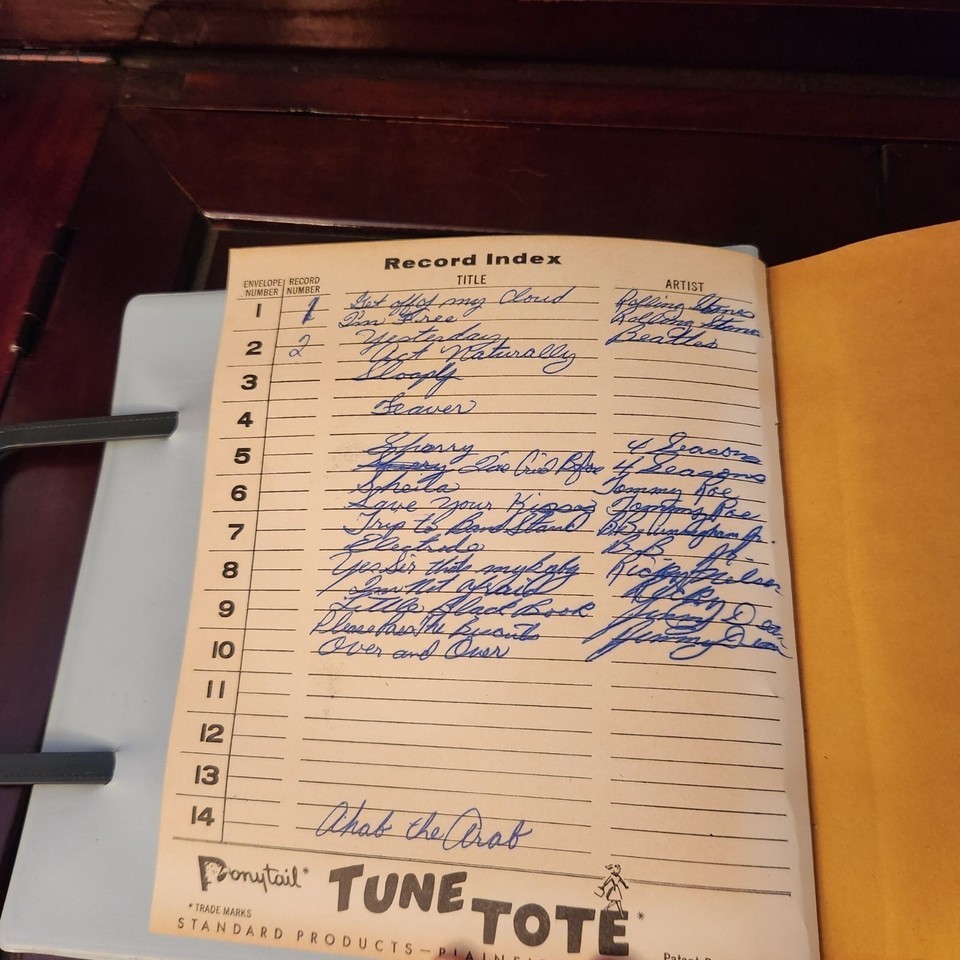 Record Index
ENVELOPE NUMBER RECORD NUMBER TITLE ARTIST
1 1 Get off of my Cloud Rolling Stones
I'm Free Rolling Stones
2 2 Yesterday Beatles
Act Naturally
3 Sloopy
4 Feaver
5 Sharry 4 Seasons
I've Cried Before 4 Seasons
6 Sheila Tommy Roe
Save Your Kisses Tommy Roe
7 Trip to Band Stand B.B. Jr.
Electrode B.B. Jr.
8 Yes Sir thats my baby Ricky Nelson
I'm Not afraid Ricky
9 Little Black Book Jimmy Dean
Please Pass The Biscuits Jimmy Dean
10 Over and Over
11
12
13
14 Ahab the Arab
Ponytail* TUNE TOTE*
* TRADE MARKS
STANDARD PRODUCTS—